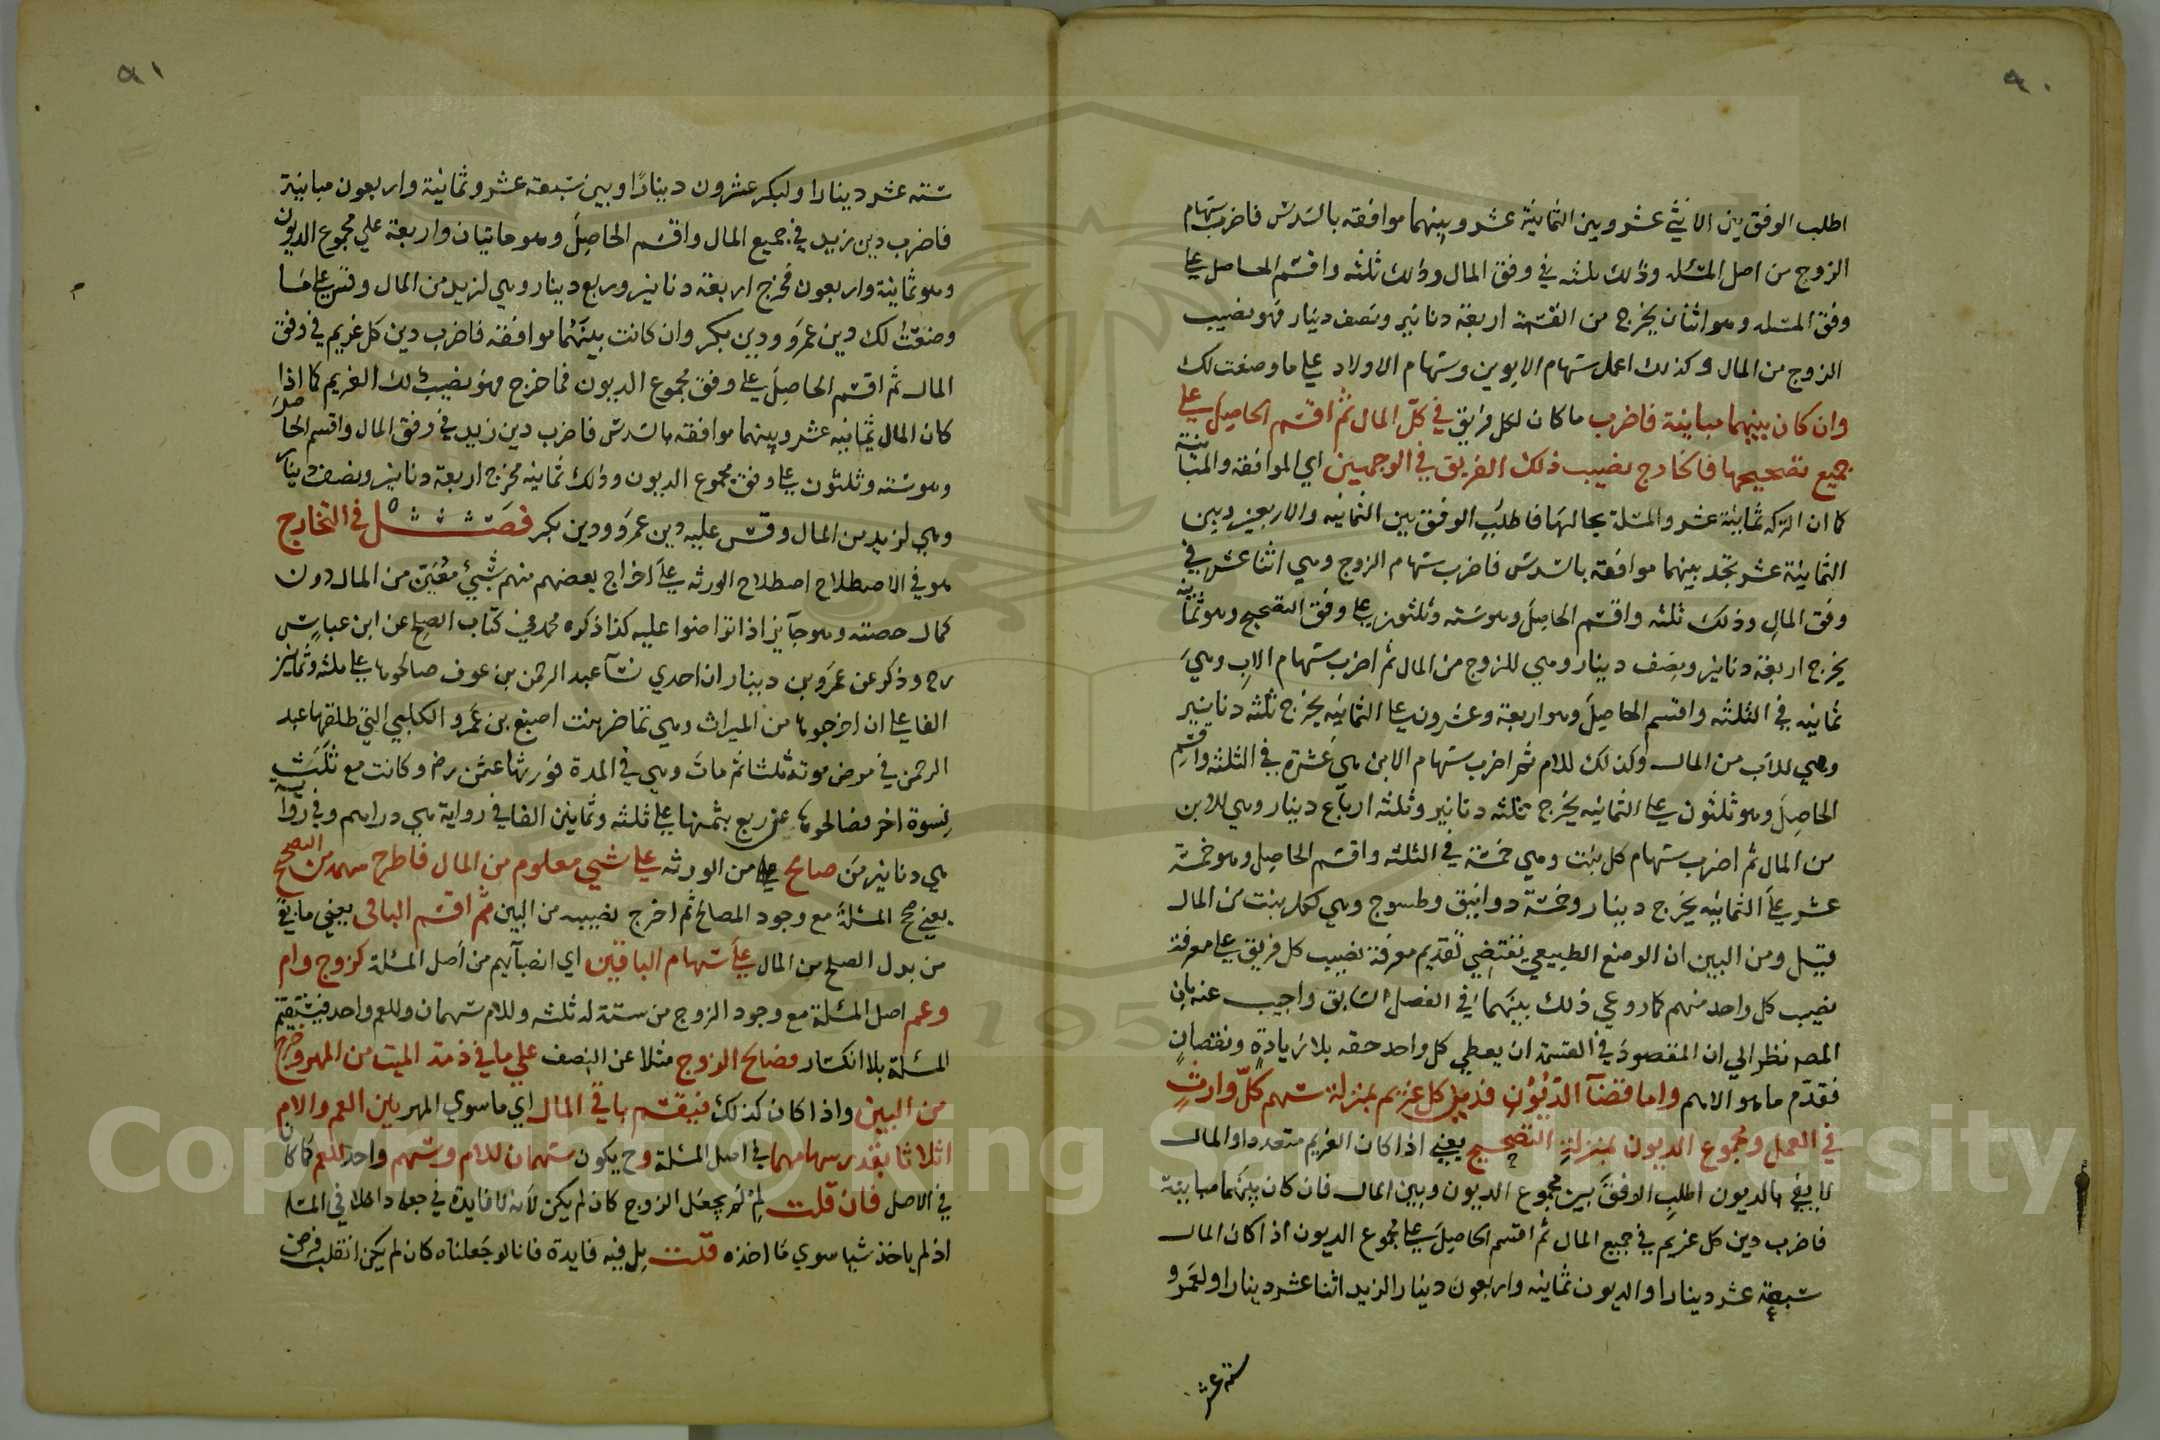 ٩٠
اطلب الوفق بين الاثني عشر وبين الثمانية عشر وبينهما موافقه بالسدس فاضرب سهام
الزوج من اصل المسئله وذلك ثلثه في وفق المال وذلك ثلثه واقسم الحاصل على
وفق المسئله وهو اثنان يخرج من القسمة اربعة دنانير ونصف دينار فهو نصيب
الزوج من المال وكذلك اعمل سهام الابوين وسهام الاولاد على ما وصفت لك
وان كان بينهما مباينة فاضرب ما كان لكل فريق في كل المال ثم اقسم الحاصل على
جميع تصحيحها فالخارج نصيب ذلك الفريق في الوجهين اي الموافقة والمباينة
كما ان التركه ثمانية عشر والمسئلة بحالها فاطلب الوفق بين الثمانيه والاربعين وبين
الثمانية عشر تجد بينهما موافقة بالسدس فاضرب سهام الزوج وهي اثنا عشر في
وفق المال وذلك ثلثه واقسم الحاصل وهو سته وثلثون على وفق التصحيح وهو ثمانيه
يخرج اربعة دنانير ونصف دينار وهي للزوج من المال ثم اضرب سهام الاب وهي
ثمانيه في الثلثه واقسم الحاصل وهو اربعة وعشرون على الثمانيه يخرج ثلثه دنانير
وهي للاب من المال وكذلك للام ثم اضرب سهام الابن هي عشرة في الثلثه واقسم
الحاصل وهو ثلثون على الثمانيه يخرج ثلثه دنانير وثلثه ارباع دينار وهي للابن
من المال ثم اضرب سهام كل بنت وهي خمسة في الثلثه واقسم الحاصل وهو خمسة
عشر على الثمانيه يخرج دينار وخمسة دوانيق وطسوج وهي لكل بنت من المال
قيل ومن البين ان الوضع الطبيعي تقتضي تقديم معرفة نصيب كل فريق على معرفة
نصيب كل واحد منهم كما روعي ذلك بينهما في الفصل السابق واجيب عنه بان
المصه نظر الي ان المقصود في القسمة ان يعطي كل واحد حقه بلا زيادة ونقصان
فقدم ما هو الاهم واما قضآ الديون فدين كل غريم بمنزلة سهم كل وارث
في العمل ومجموع الديون بمنزلة التصحيح يعني اذا كان الغريم متعددا والمال
لا يفي بالديون اطلب الوفق بين مجموع الديون وبين المال فان كان بينهما مباينة
فاضرب دين كل غريم في جميع المال ثم اقسم الحاصل على مجموع الديون اذا كان المال
سبعة عشر دينارا والديون ثمانيه واربعون دينارا لزيد اثنا عشر دينارا ولعمرو
سته عشر
٩١
سته عشر دينارا ولبكر عشرون دينارا وبين سبعة عشر وثمانية واربعون مباينة
فاضرب دين زيد في جميع المال واقسم الحاصل وهو مايتان واربعة علي مجموع الديون
وهو ثمانية واربعون فخرج اربعة دنانير وربع دينار وهي لزيد من المال وقس على ما
وصفت لك دين عمرو ودين بكر وان كانت بينهما موافقة فاضرب دين كل غريم في وفق
المال ثم اقسم الحاصل على وفق مجموع الديون فما خرج فهو نصيب ذلك الغريم كما اذا
كان المال ثمانيه عشر وبينهما موافقه بالسدس فاضرب دين زيد في وفق المال واقسم الحاصل
وهو سته وثلثون على وفق مجموع الديون وذلك ثمانيه فخرج اربعة دنانير ونصف دينار
وهي لزيد من المال وقس عليه دين عمرو ودين بكر فصل في التخارج
هو في الاصطلاح اصطلاح الورثه على اخراج بعضهم منهم بشيئ معين من المال دون
كمال حصته وهو جايز اذا تراضوا عليه كذا ذكره محمد في كتاب الصلح عن ابن عباس
رح وذكر عن عمرو بن دينار ان احدي نسآ عبد الرحمن بن عوف صالحوها على ثلثه وثمانين
الفا على ان اخرجوها من الميراث وهي تماضر بنت اصبغ بن عمرو الكلبي التي طلقها عبد
الرحمن في مرض موته ثلثا ثم مات وهي في المدة فورثها عثمن رض وكانت مع ثلث
نسوة اخر فصالحوها عن ربع بثمنها على ثلثه وثمانين الفا في رواية هي دراهم وفي رواية
هي دنانير من صالح من الورثه على شيي معلوم من المال فاطرح سهمه من التصحيح
يعني صح المسئلة مع وجود المصالح ثم اخرج نصيبه من البين ثم اقسم الباقى يعني ما بقي
من بدل الصلح من المال على سهام الباقين اي انصبآيهم من اصل المسئلة كزوج وام
وعم اصل المسئلة مع وجود الزوج من ستة له ثلثه وللام سهمان وللعم واحد فيستقيم
المسئلة بلا انكسار فصالح الزوج مثلا عن النصف علي ما في ذمته الميت من المهر وخرج
من البين واذا كان كذلك فيقسم باقي المال اي ما سوي المهر بين العم والام
اثلاثا بقدر سهامهما في اصل المسئلة وح يكون سهمان للام وسهم واحد للعم كما كان
في الاصل فان قلت لم لم يجعل الزوج كان لم يكن لانه لا فايدة في جعله داخلا في المسئله
اذ لم ياخذ شيا سوي ما اخذه قلت بل فيه فايدة فانا لو جعلناه كان لم يكن انقلب فرض
Copyright © King Saud University
1957